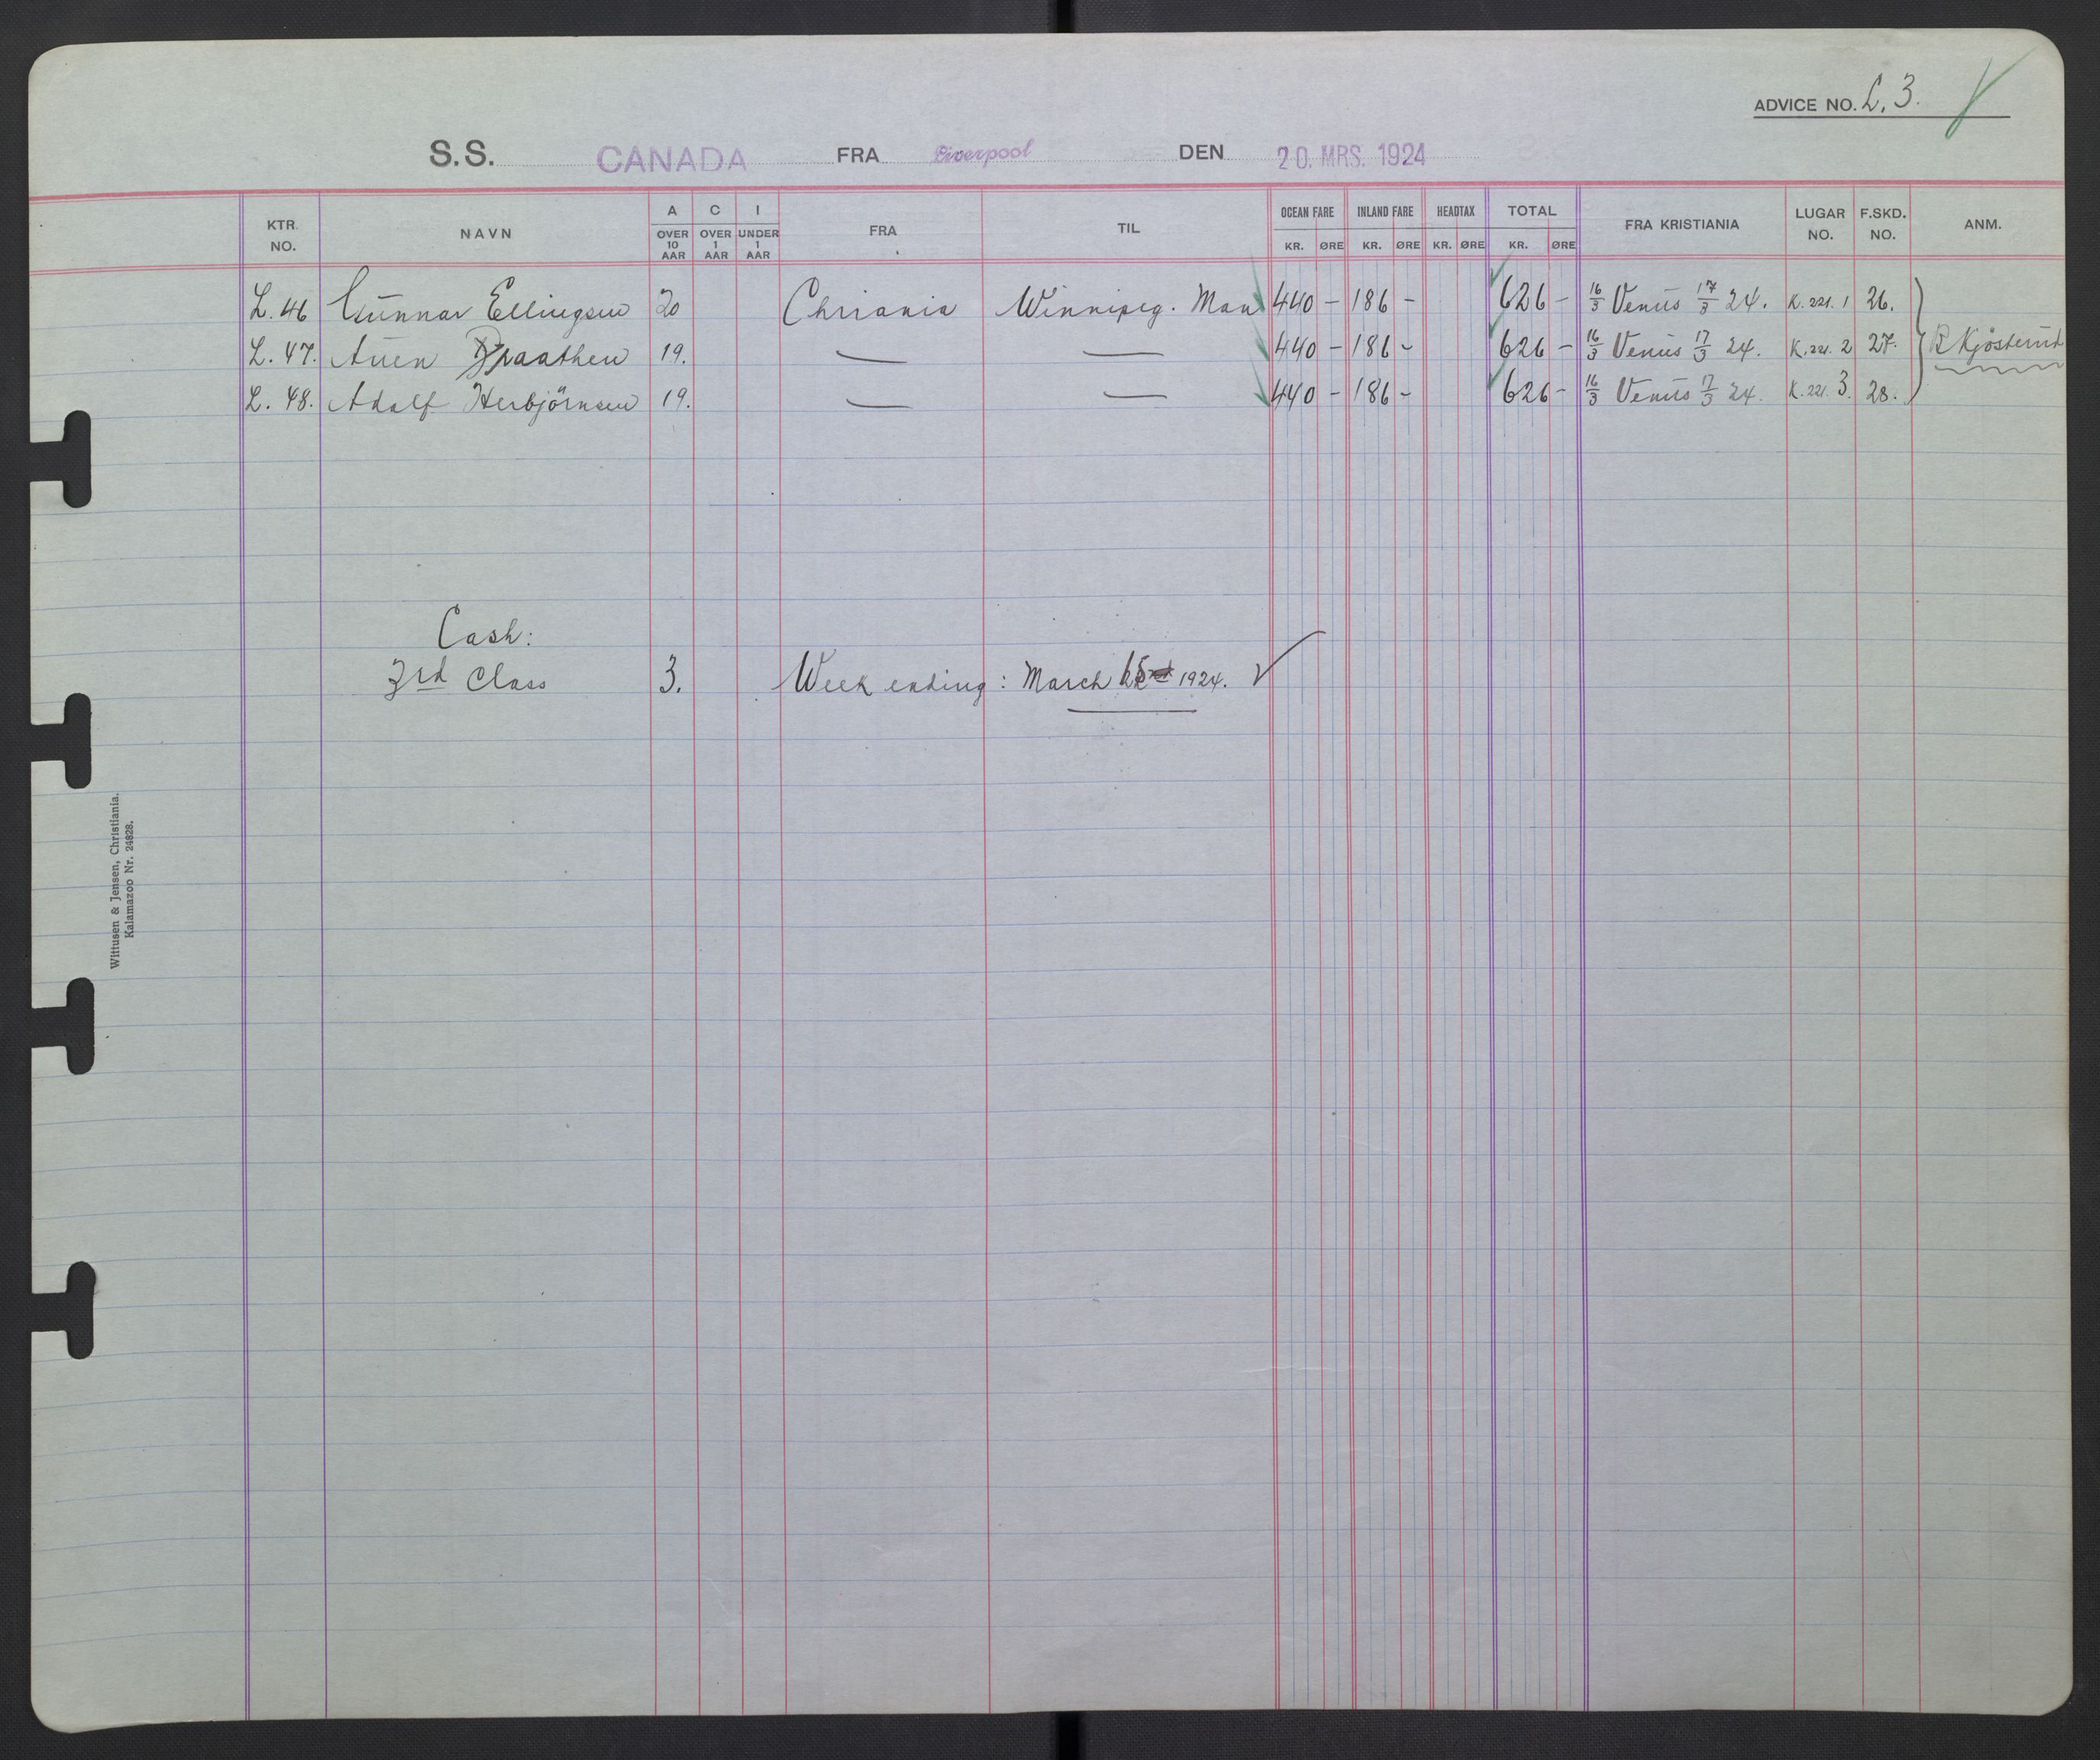 ADVICE NO. L. 3.
S.S. CANADA FRA Liverpool DEN 20. MRS. 1924
KTR. NO. NAVN A OVER 10 AAR C OVER 1 AAR I UNDER 1 AAR FRA TIL OCEAN FARE KR. ØRE INLAND FARE KR. ØRE HEADTAX KR. ØRE TOTAL KR. ØRE FRA KRISTIANIA LUGAR NO. F.SKD. NO. ANM.
L. 46 Gunnar Ellingsen 20 Chriania Winnipeg. Man 440 – 186 – 626 – 16/3 Venus 17/3 24. K. 221. 1 26.
L. 47. Auen Braathen 19. — — 440 – 186 – 626 – 16/3 Venus 17/3 24. K. 221. 2 27. Kjösterud
L. 48. Adolf Herbjörnsen 19. — — 440 – 186 – 626 – 16/3 Venus 17/3 24. K. 221. 3. 28.
Cash:
3rd Class 3. Week ending: March 1924.
Wittusen & Jensen, Christiania.
Kalamazoo Nr. 24828.